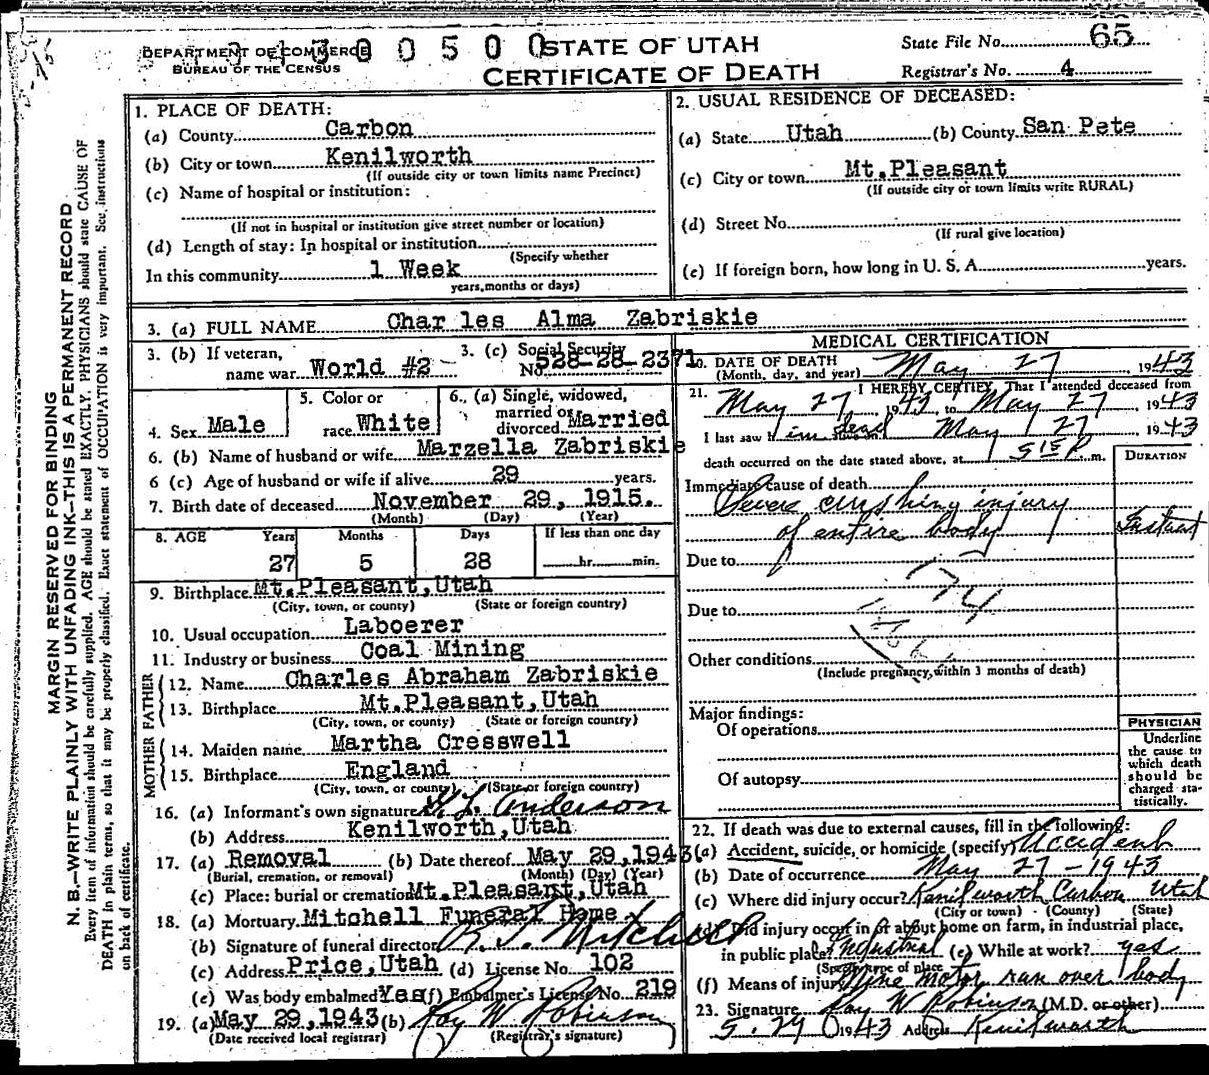 DEPARTMENT OF COMMERCE
BUREAU OF THE CENSUS
4 3 0 0 5 0 0
STATE OF UTAH
CERTIFICATE OF DEATH
State File No. 65
Registrar's No. 4
MARGIN RESERVED FOR BINDING
N. B.—WRITE PLAINLY WITH UNFADING INK—THIS IS A PERMANENT RECORD
Every item of information should be carefully supplied. AGE should be stated EXACTLY. PHYSICIANS should state CAUSE OF
DEATH in plain terms, so that it may be properly classified. Exact statement of OCCUPATION is very important. See instructions
on back of certificate.
1. PLACE OF DEATH:
(a) County Carbon
(b) City or town Kenilworth
(If outside city or town limits name Precinct)
(c) Name of hospital or institution:
(If not in hospital or institution give street number or location)
(d) Length of stay: In hospital or institution
(Specify whether
In this community 1 Week
years, months or days)
2. USUAL RESIDENCE OF DECEASED:
(a) State Utah (b) County San Pete
(c) City or town Mt.Pleasant
(If outside city or town limits write RURAL)
(d) Street No.
(If rural give location)
(e) If foreign born, how long in U. S. A. years.
3. (a) FULL NAME Charles Alma Zabriskie
3. (b) If veteran,
name war World #2
3. (c) Social Security
No. 528-28-2371
4. Sex Male
5. Color or
race White
6. (a) Single, widowed,
married or
divorced Married
6. (b) Name of husband or wife Marzella Zabriskie
6 (c) Age of husband or wife if alive 29 years.
7. Birth date of deceased November 29, 1915.
(Month) (Day) (Year)
8. AGE Years Months Days If less than one day
27 5 28 hr. min.
9. Birthplace Mt.Pleasant,Utah
(City, town, or county) (State or foreign country)
10. Usual occupation Laboerer
11. Industry or business Coal Mining
FATHER
12. Name Charles Abraham Zabriskie
13. Birthplace Mt.Pleasant,Utah
(City, town, or county) (State or foreign country)
MOTHER
14. Maiden name Martha Cresswell
15. Birthplace England
(City, town, or county) (State or foreign country)
16. (a) Informant's own signature Anderson
(b) Address Kenilworth,Utah
17. (a) Removal (b) Date thereof May 29,1943
(Burial, cremation, or removal) (Month) (Day) (Year)
(c) Place: burial or cremation Mt.Pleasant,Utah
18. (a) Mortuary Mitchell Funeral Home
(b) Signature of funeral director Mitchell
(c) Address Price,Utah (d) License No. 102
(e) Was body embalmed Yes (f) Embalmer's License No. 219
19. (a) May 29,1943 (b) Roy W Robinson
(Date received local registrar) (Registrar's signature)
MEDICAL CERTIFICATION
20. DATE OF DEATH
(Month, day, and year) May 27, 1943
21. I HEREBY CERTIFY, That I attended deceased from
May 27, 1943 to May 27, 1943
I last saw him dead May 27, 1943
death occurred on the date stated above, at 5 15 P m.
DURATION
Immediate cause of death
Severe crushing injury
of entire body Instant
Due to
Due to
Other conditions
(Include pregnancy within 3 months of death)
Major findings:
Of operations
Of autopsy
PHYSICIAN
Underline
the cause to
which death
should be
charged sta-
tistically.
22. If death was due to external causes, fill in the following:
(a) Accident, suicide, or homicide (specify) Accident
(b) Date of occurrence May 27-1943
(c) Where did injury occur? Kenilworth Carbon Utah
(City or town) (County) (State)
(d) Did injury occur in or about home on farm, in industrial place,
in public place? Industrial (e) While at work? yes
(Specify type of place
(f) Means of injury Mine Motor ran over body
23. Signature Roy W Robinson (M.D. or other)
5-29 1943 Address Kenilworth